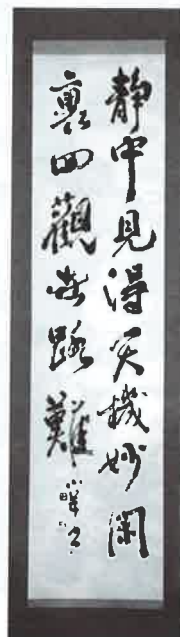 靜中見得天機妙閑
裏回觀世路難